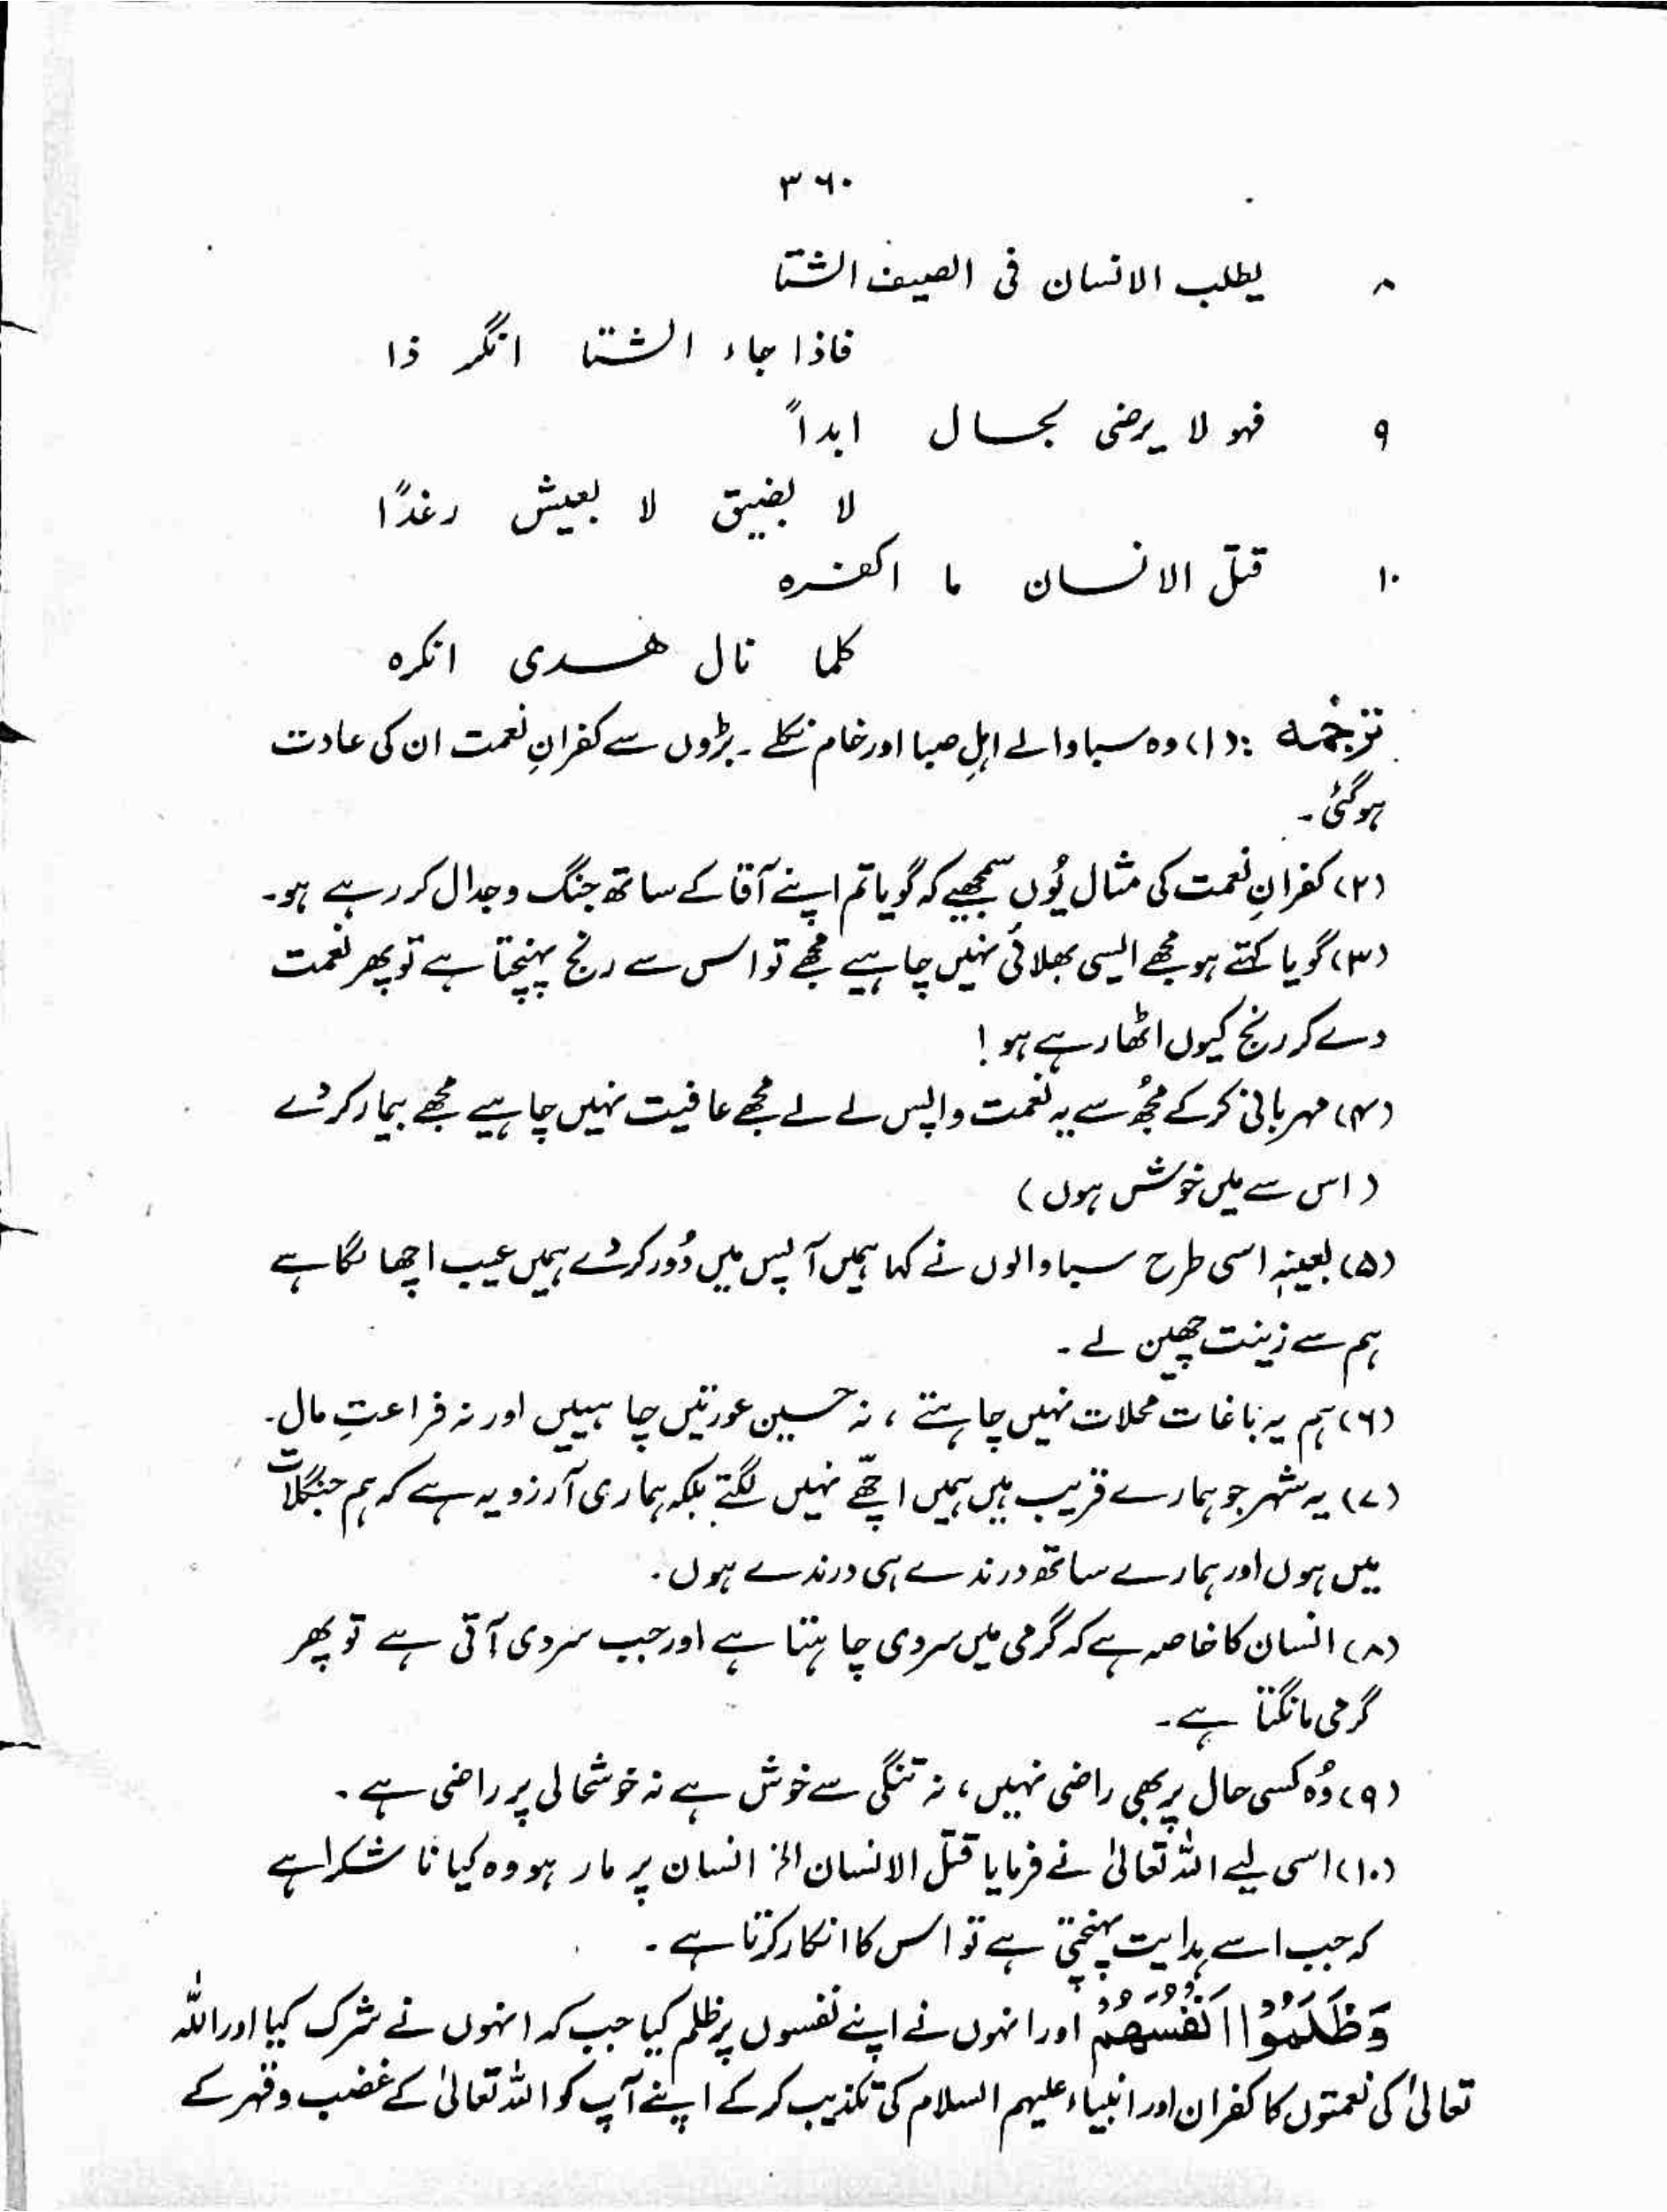 ۳۶۰
۸ یطلب الانسان فی الصیف الشتا
فاذا جاء الشتا انکر ذا
۹ فہو لا یرضی بحال ابداً
لا بضیق لا بعیش رغدًا
۱۰ قتل الانسان ما اکفرہ
کلما نال ھدی انکرہ
ترجمہ : (۱) وہ سبا والے اہلِ صبا اور خام نکلے ۔ بڑوں سے کفرانِ نعمت ان کی عادت
ہوگئی ۔
(۲) کفرانِ نعمت کی مثال یُوں سمجھیے کہ گویا تم اپنے آقا کے ساتھ جنگ و جدال کر رہے ہو۔
(۳) گویا کہتے ہو مجھے ایسی بھلائی نہیں چاہیے مجھے تو اس سے رنج پہنچتا ہے تو پھر نعمت
دے کر رنج کیوں اٹھا رہے ہو !
(۴) مہربانی کرکے مجھُ سے یہ نعمت واپس لے لے مجھے عافیت نہیں چاہیے مجھے بیمار کر دے
( اس سے میں خوش ہوں )
(۵) بعینہٖ اسی طرح سبا والوں نے کہا ہمیں آپس میں دُور کر دے ہمیں عیب اچھا لگا ہے
ہم سے زینت چھین لے ۔
(۶) ہم یہ باغات محلات نہیں چاہتے ، نہ حسین عورتیں چاہییں اور نہ فراعتِ مال ۔
(۷) یہ شہر جو ہمارے قریب ہیں ہمیں اچھّے نہیں لگتے بلکہ ہماری آرزو یہ ہے کہ ہم جنگلات
میں ہوں اور ہمارے ساتھ درندے ہی درندے ہوں ۔
(۸) انسان کا خاصہ ہے کہ گرمی میں سردی چاہتا ہے اور جب سردی آتی ہے تو پھر
گرمی مانگتا ہے ۔
(۹) وُہ کسی حال پر بھی راضی نہیں ، نہ تنگی سے خوش ہے نہ خوشحالی پر راضی ہے ۔
(۱۰) اسی لیے اللہ تعالیٰ نے فرمایا قتل الانسان الخ انسان پر مار ہو وہ کیا نا شکرا ہے
کہ جب اسے ہدایت پہنچتی ہے تو اس کا انکار کرتا ہے ۔
وَظَلَمُوْٓا اَنْفُسَهُمْ اور انہوں نے اپنے نفسوں پر ظلم کیا جب کہ انہوں نے شرک کیا اور اللہ
تعالیٰ کی نعمتوں کا کفران اور انبیاء علیہم السلام کی تکذیب کر کے اپنے آپ کو اللہ تعالیٰ کے غضب و قہر کے